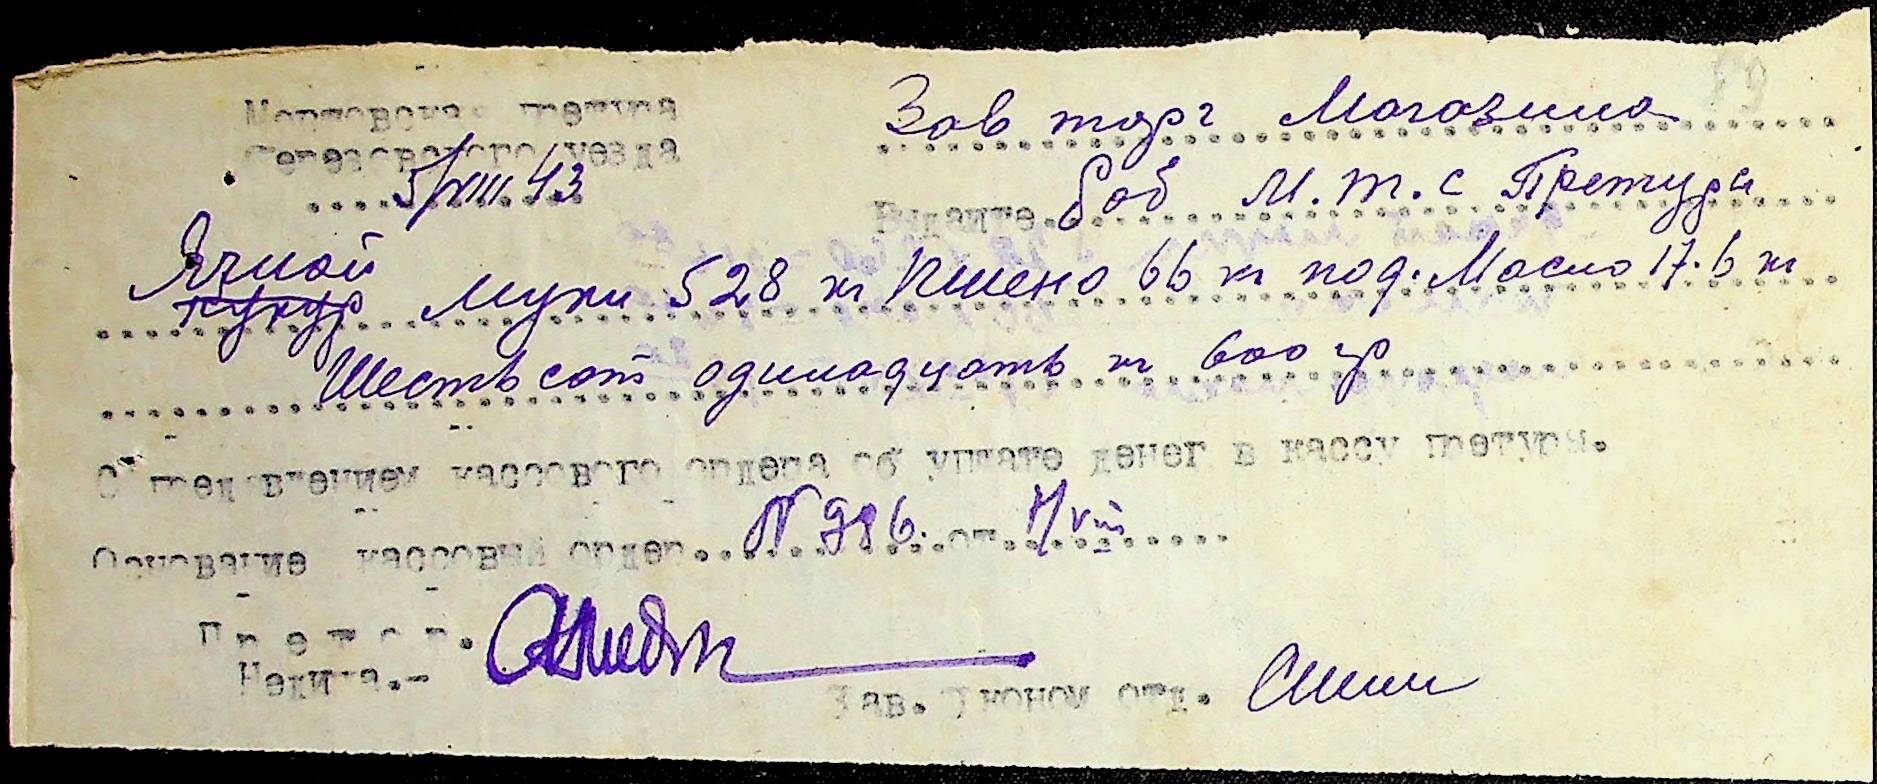 89
Мостовская претура
уезда
Зав торг Магазина
5/VIII.43
Выдайте. Раб М.Т.С Претуры
Ячной
кукур муки 528 кг Пшено 66 кг под. Масло 17.6 кг
Шестьсот одинадцать кг 600 гр
С предъявлением кассового ордера об уплате денег в кассу претуры.
Основание кассовый ордер. N 986. от. /VIII
Претор.
Недига.-
Зав. Эконом отд.